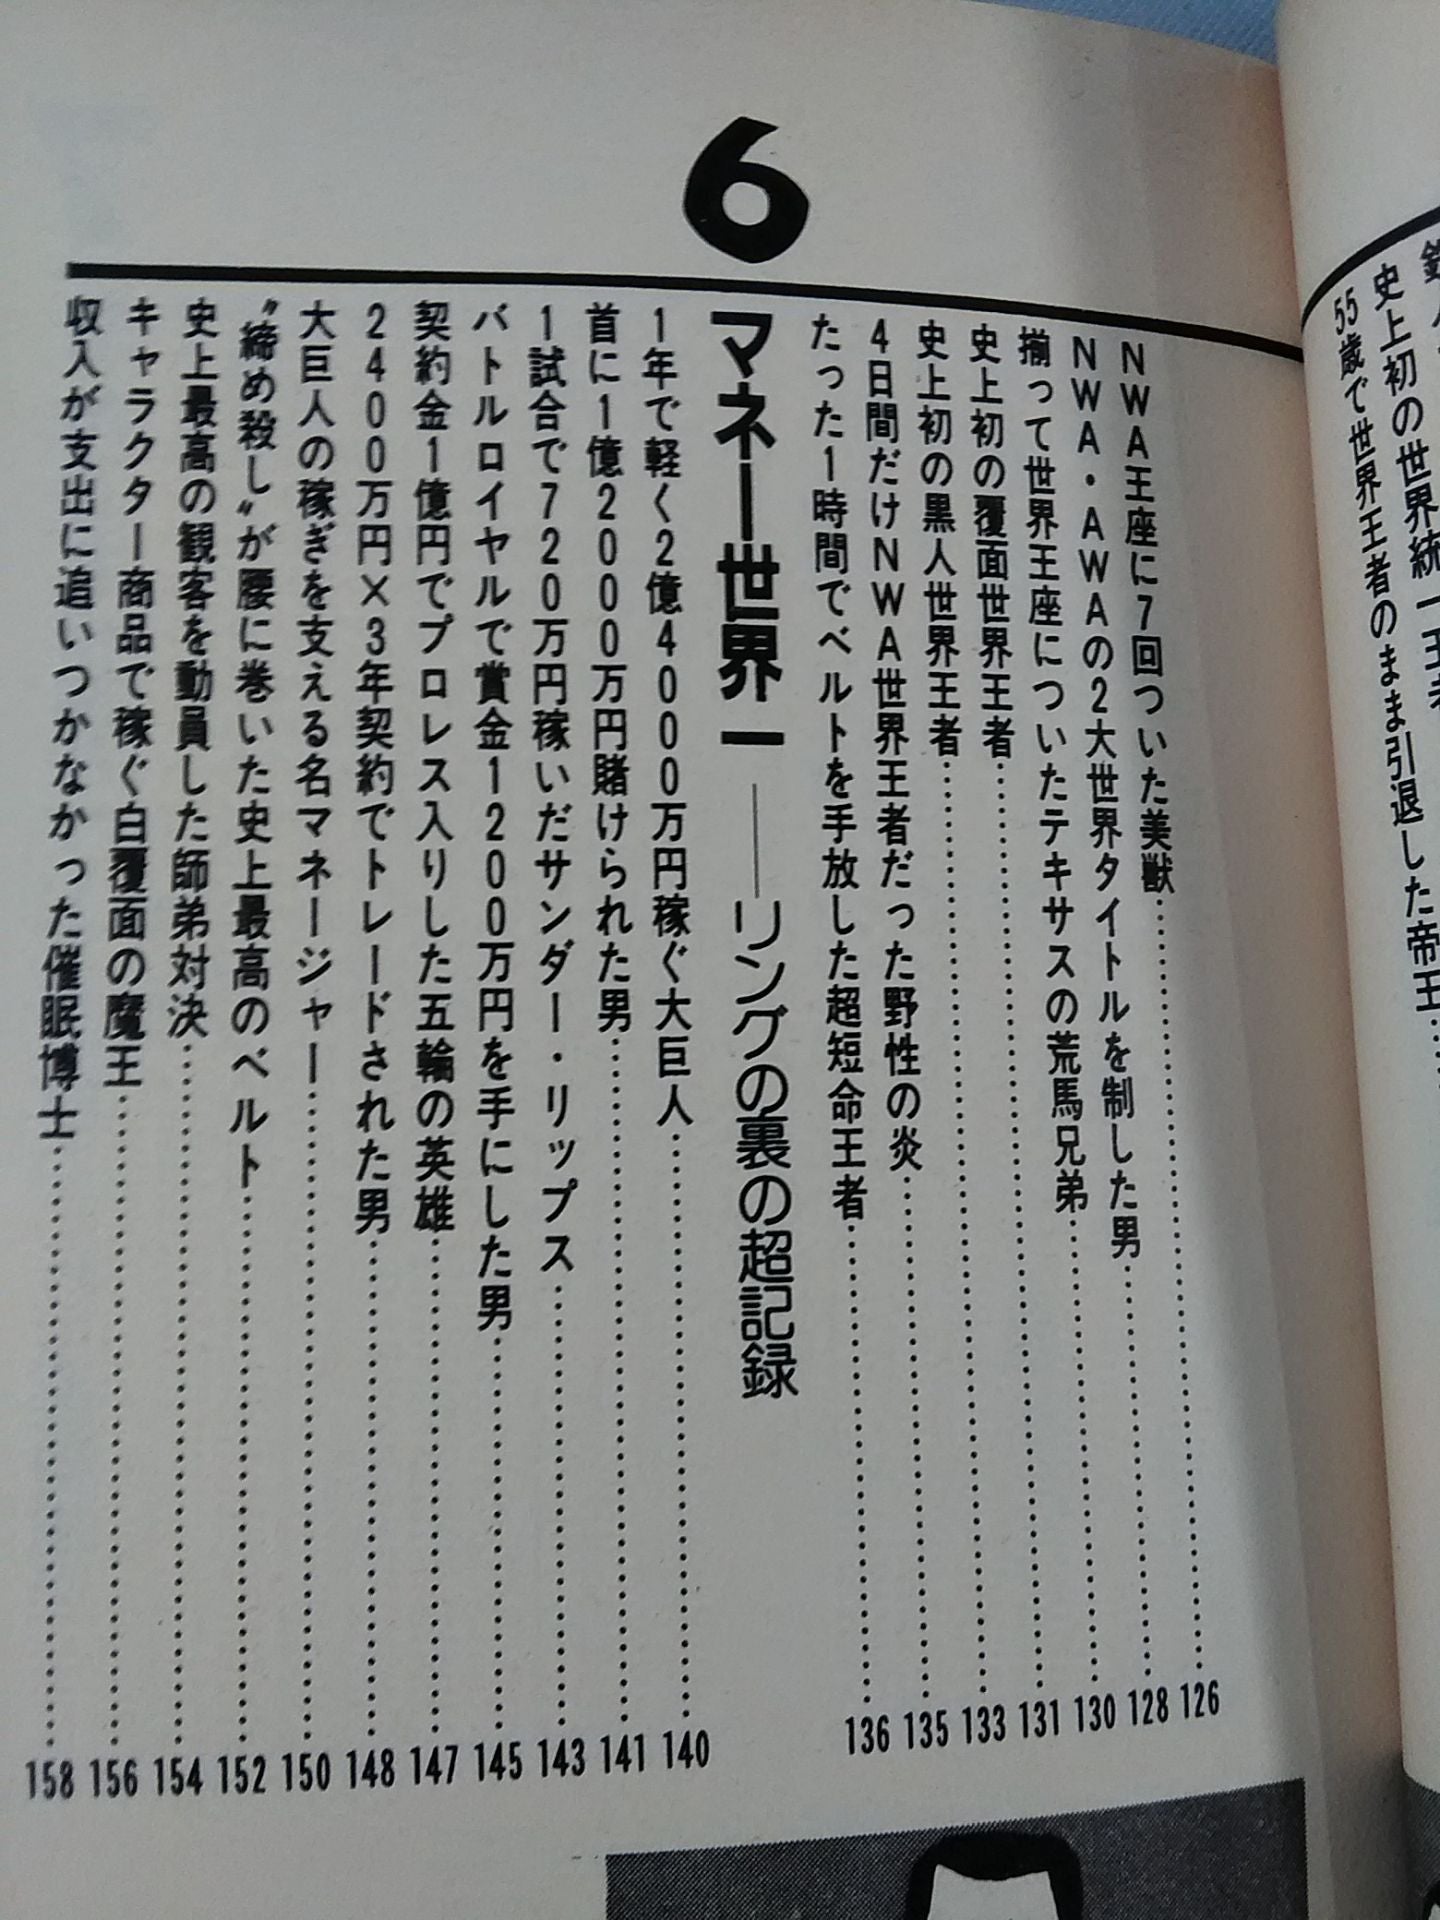 史上初の世界統一王者
55歳で世界王者のまま引退した帝王……
NWA王座に7回ついた美獣……126
NWA・AWAの2大世界タイトルを制した男……128
揃って世界王座についたテキサスの荒馬兄弟……130
史上初の覆面世界王者……131
史上初の黒人世界王者……133
4日間だけNWA世界王者だった野性の炎……135
たった1時間でベルトを手放した超短命王者……136
6
マネー世界一――リングの裏の超記録
1年で軽く2億4000万円稼ぐ大巨人……140
首に1億2000万円賭けられた男……141
1試合で720万円稼いだサンダー・リップス……143
バトルロイヤルで賞金1200万円を手にした男……145
契約金1億円でプロレス入りした五輪の英雄……147
2400万円×3年契約でトレードされた男……148
大巨人の稼ぎを支える名マネージャー……150
〝締め殺し〟が腰に巻いた史上最高のベルト……152
史上最高の観客を動員した師弟対決……154
キャラクター商品で稼ぐ白覆面の魔王……156
収入が支出に追いつかなかった催眠博士……158